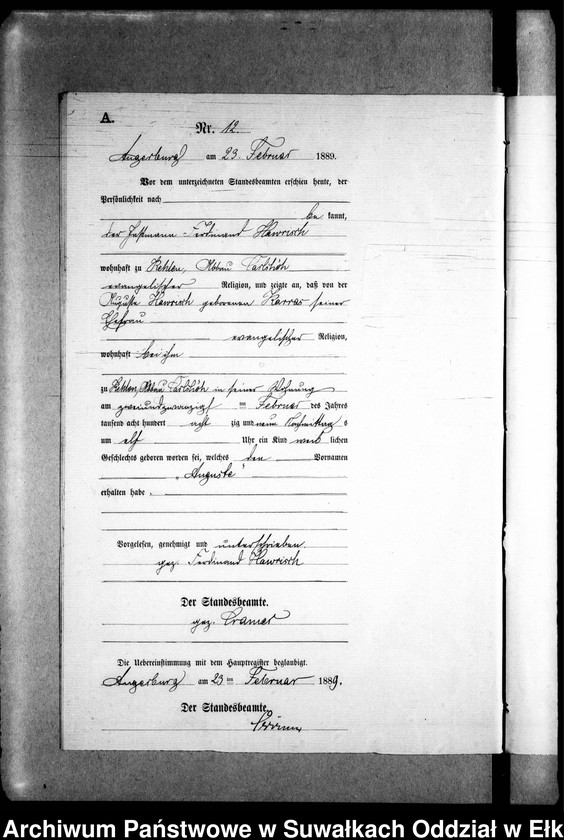 A.
Nr. 12.
Angerburg am 23. Februar 1889.
Vor dem unterzeichneten Standesbeamten erschien heute, der
Persönlichkeit nach
be kannt,
der Instmann Ferdinand Hawrisch
wohnhaft zu Kehlen, Abbau Carlshöh
evangelischer Religion, und zeigte an, daß von der
Auguste Hawrisch geborenen Karras seiner
Ehefrau
evangelischer Religion,
wohnhaft bei ihm
zu Kehlen, Abbau Carlshöh in seiner Wohnung
am zweiundzwanzigsten Februar des Jahres
tausend acht hundert acht zig und neun Vormittag s
um elf Uhr ein Kind weib lichen
Geschlechts geboren worden sei, welches den Vornamen
„Auguste"
erhalten habe.
Vorgelesen, genehmigt und unterschrieben.
gez. Ferdinand Hawrisch
Der Standesbeamte.
gez. Cramer
Die Uebereinstimmung mit dem Hauptregister beglaubigt.
Angerburg am 23 ten Februar 1889.
Der Standesbeamte.
Archiwum Państwowe w Suwałkach Oddział w Ełk